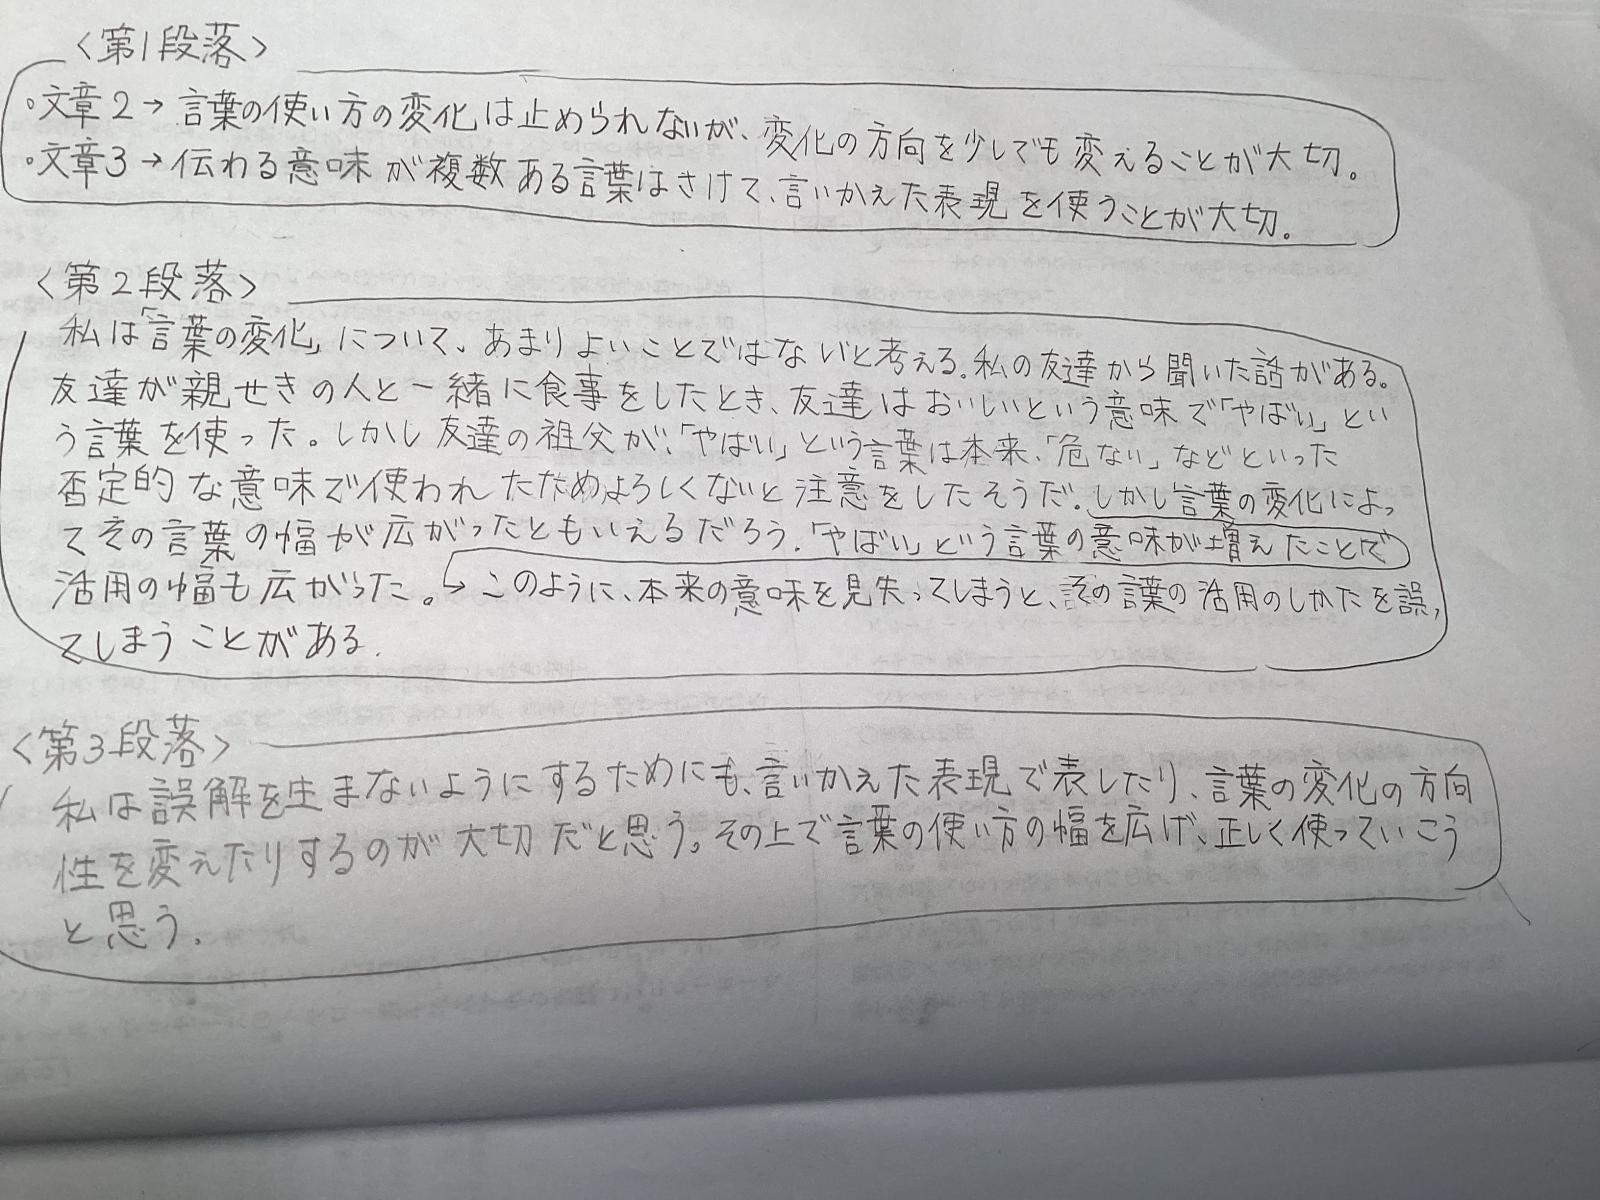 〈第1段落〉
・文章2→言葉の使い方の変化は止められないが、変化の方向を少しでも変えることが大切。
・文章3→伝わる意味が複数ある言葉はさけて、言いかえた表現を使うことが大切。
〈第2段落〉
私は「言葉の変化」について、あまりよいことではないと考える。私の友達から聞いた話がある。
友達が親せきの人と一緒に食事をしたとき、友達はおいしいという意味で「やばい」とい
う言葉を使った。しかし友達の祖父が、「やばい」という言葉は本来、「危ない」などといった
否定的な意味で使われたためよろしくないと注意をしたそうだ。しかし言葉の変化によっ
てその言葉の幅が広がったともいえるだろう。「やばい」という言葉の意味が増えたことで
活用の幅も広がった。→このように、本来の意味を見失ってしまうと、その言葉の活用のしかたを誤っ
てしまうことがある。
〈第3段落〉
私は誤解を生まないようにするためにも、言いかえた表現で表したり、言葉の変化の方向
性を変えたりするのが大切だと思う。その上で言葉の使い方の幅を広げ、正しく使っていこう
と思う。